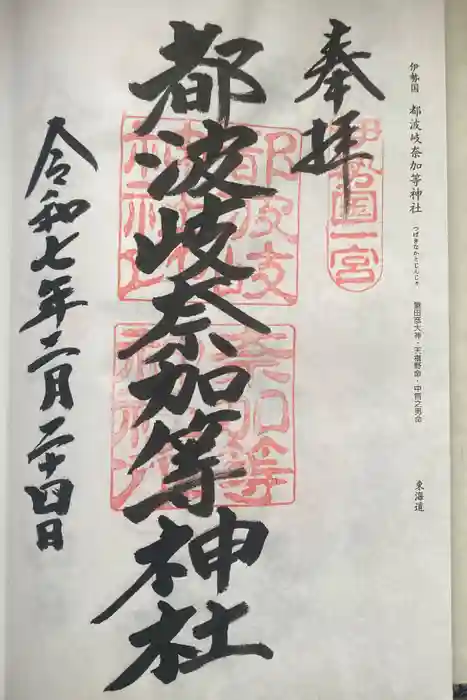 伊勢国 都波岐奈加等神社 つばきなかとじんじゃ 猿田彦大神・天椹野命・中筒之男命 東海道
奉拝
伊勢国一宮
都波岐奈加等神社
都波岐神社
奈加等神社
令和七年二月二十四日